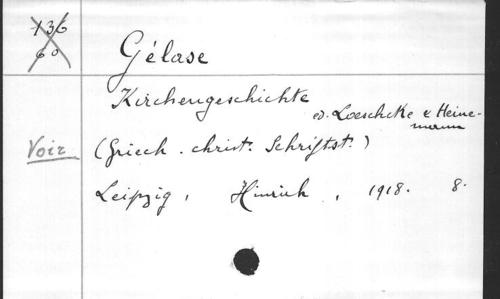 136
60
Gélase
Kirchengeschichte
ed. Loeschcke & Heine-
mann
Voir
(Griech. christ. Schriftst.)
Leipzig, Hinrich, 1918. 8°